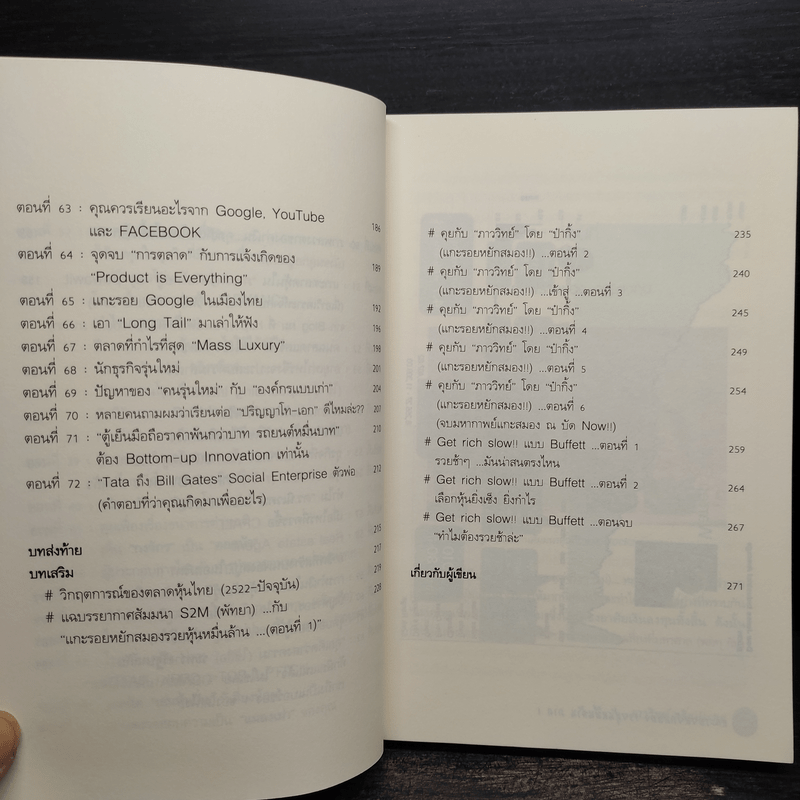 ตอนที่ 63 : คุณควรเรียนอะไรจาก Google, YouTube
และ FACEBOOK 186
ตอนที่ 64 : จุดจบ "การตลาด" กับการแจ้งเกิดของ
"Product is Everything" 189
ตอนที่ 65 : แกะรอย Google ในเมืองไทย 192
ตอนที่ 66 : เอา "Long Tail" มาเล่าให้ฟัง 196
ตอนที่ 67 : ตลาดที่กำไรที่สุด "Mass Luxury" 198
ตอนที่ 68 : นักธุรกิจรุ่นใหม่ 201
ตอนที่ 69 : ปัญหาของ "คนรุ่นใหม่" กับ "องค์กรแบบเก่า" 204
ตอนที่ 70 : หลายคนถามผมว่าเรียนต่อ "ปริญญาโท-เอก" ดีไหมล่ะ?? 207
ตอนที่ 71 : "ตู้เย็นมือถือราคาพันกว่าบาท รถยนต์หมื่นบาท" 210
ต้อง Bottom-up Innovation เท่านั้น
ตอนที่ 72 : "Tata ถึง Bill Gates" Social Enterprise ตัวพ่อ 212
(คำตอบที่ว่าคุณเกิดมาเพื่ออะไร)
บทส่งท้าย 215
บทเสริม 217
# วิกฤตการณ์ของตลาดหุ้นไทย (2522-ปัจจุบัน) 219
# แฉบรรยากาศสัมมนา S2M (พัทยา) ...กับ 228
"แกะรอยหยักสมองรวยหุ้นหมื่นล้าน ...(ตอนที่ 1)"
# คุยกับ "ภาววิทย์" โดย "ป๋ากิ้ง" 235
(แกะรอยหยักสมอง!!) ...ตอนที่ 2
# คุยกับ "ภาววิทย์" โดย "ป๋ากิ้ง" 240
(แกะรอยหยักสมอง!!) ...เข้าสู่ ...ตอนที่ 3
# คุยกับ "ภาววิทย์" โดย "ป๋ากิ้ง" 245
(แกะรอยหยักสมอง!!) ...ตอนที่ 4
# คุยกับ "ภาววิทย์" โดย "ป๋ากิ้ง" 249
(แกะรอยหยักสมอง!!) ...ตอนที่ 5
# คุยกับ "ภาววิทย์" โดย "ป๋ากิ้ง" 254
(แกะรอยหยักสมอง!!) ...ตอนที่ 6
(จบมหากาพย์แกะสมอง ณ บัด Now!!)
# Get rich slow!! แบบ Buffett ...ตอนที่ 1 259
รวยช้าๆ ...มันน่าสนตรงไหน
# Get rich slow!! แบบ Buffett ...ตอนที่ 2 264
เลือกหุ้นยิ่งเซ็ง ยิ่งกำไร
# Get rich slow!! แบบ Buffett ...ตอนจบ 267
"ทำไมต้องรวยช้าล่ะ"
เกี่ยวกับผู้เขียน 271